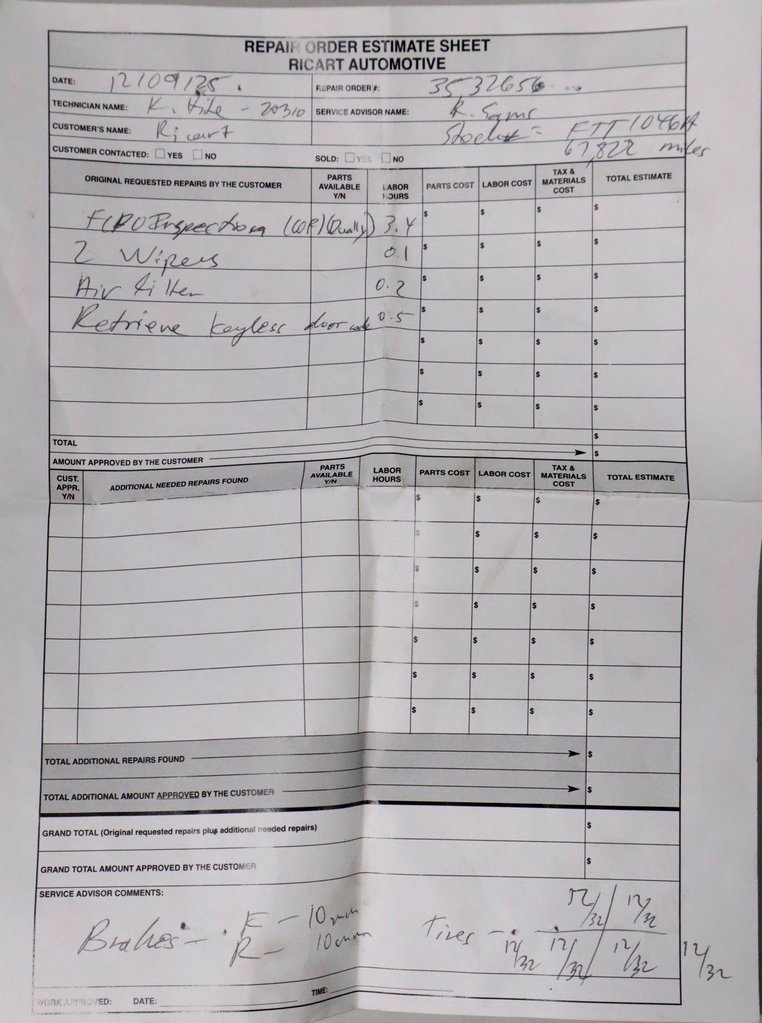 REPAIR ORDER ESTIMATE SHEET
RICART AUTOMOTIVE
DATE: 12/09/25 REPAIR ORDER #: 3532656
TECHNICIAN NAME: K. - 20310 SERVICE ADVISOR NAME: R.
CUSTOMER'S NAME: Ricart FTT1046A
CUSTOMER CONTACTED: YES NO SOLD: YES NO 67,822 miles
ORIGINAL REQUESTED REPAIRS BY THE CUSTOMER PARTS AVAILABLE Y/N LABOR HOURS PARTS COST LABOR COST TAX & MATERIALS COST TOTAL ESTIMATE
Inspection (Dually) 3.4 $ $ $ $
2 Wipers 0.1 $ $ $ $
Air filter 0.2 $ $ $ $
Retrieve keyless door code 0.5 $ $ $ $
$ $ $ $
$ $ $ $
$ $ $ $
TOTAL $
AMOUNT APPROVED BY THE CUSTOMER $
CUST. APPR. Y/N ADDITIONAL NEEDED REPAIRS FOUND PARTS AVAILABLE Y/N LABOR HOURS PARTS COST LABOR COST TAX & MATERIALS COST TOTAL ESTIMATE
$ $ $ $
$ $ $ $
$ $ $ $
$ $ $ $
$ $ $ $
$ $ $ $
$ $ $ $
TOTAL ADDITIONAL REPAIRS FOUND $
TOTAL ADDITIONAL AMOUNT APPROVED BY THE CUSTOMER $
GRAND TOTAL (Original requested repairs plus additional needed repairs) $
GRAND TOTAL AMOUNT APPROVED BY THE CUSTOMER $
SERVICE ADVISOR COMMENTS:
Brakes - F - 10mm Tires - 12/32 12/32
R - 10mm 12/32 12/32 12/32 12/32
WORK APPROVED: DATE: TIME: